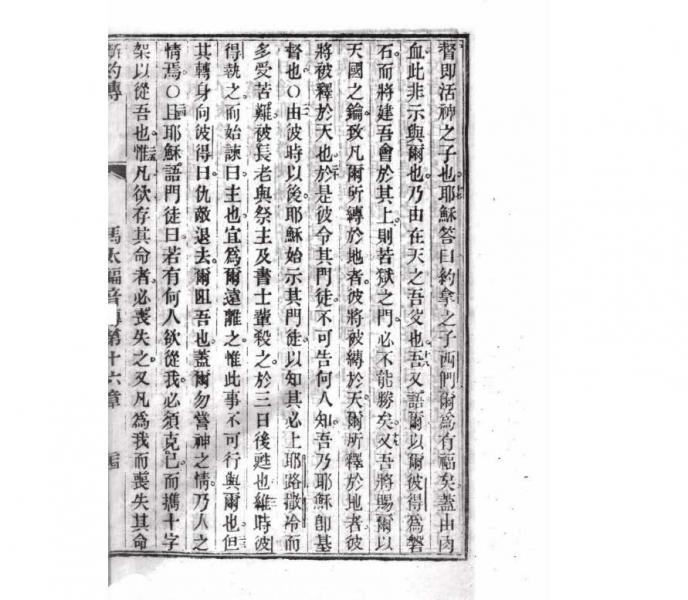 督即活神之子也耶穌答曰約拿之子西們爾為有福矣蓋由肉
血此非示與爾也乃由在天之吾父也吾又語爾以爾彼得為磐
石而將建吾會於其上則若獄之門必不能勝矣又吾將賜爾以
天國之鑰致凡爾所縛於地者彼將被縛於天爾所釋於地者彼
將被釋於天也於是彼令其門徒不可告何人知吾乃耶穌即基
督也〇由彼時以後耶穌始示其門徒以知其必上耶路撒冷而
多受苦難被長老與祭主及書士輩殺之於三日後甦也維時彼
得執之而始諫曰主也宜為爾遠離之惟此事不可行與爾也但
其轉身向彼得曰仇敵退去爾阻吾也蓋爾勿嘗神之情乃人之
情焉〇且耶穌語門徒曰若有何人欲從我必須克己而攜十字
架以從吾也惟凡欲存其命者必喪失之又凡為我而喪失其命
新約傳 馬太福音傳第十六章